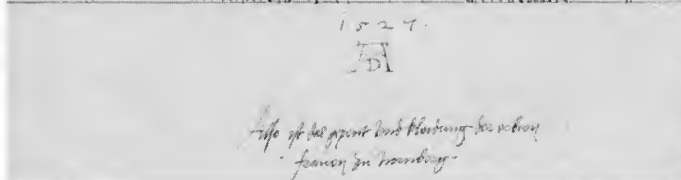 1527.
AD
Also ist das gepent und kleidung der erbern
frauen zu Nornberg.